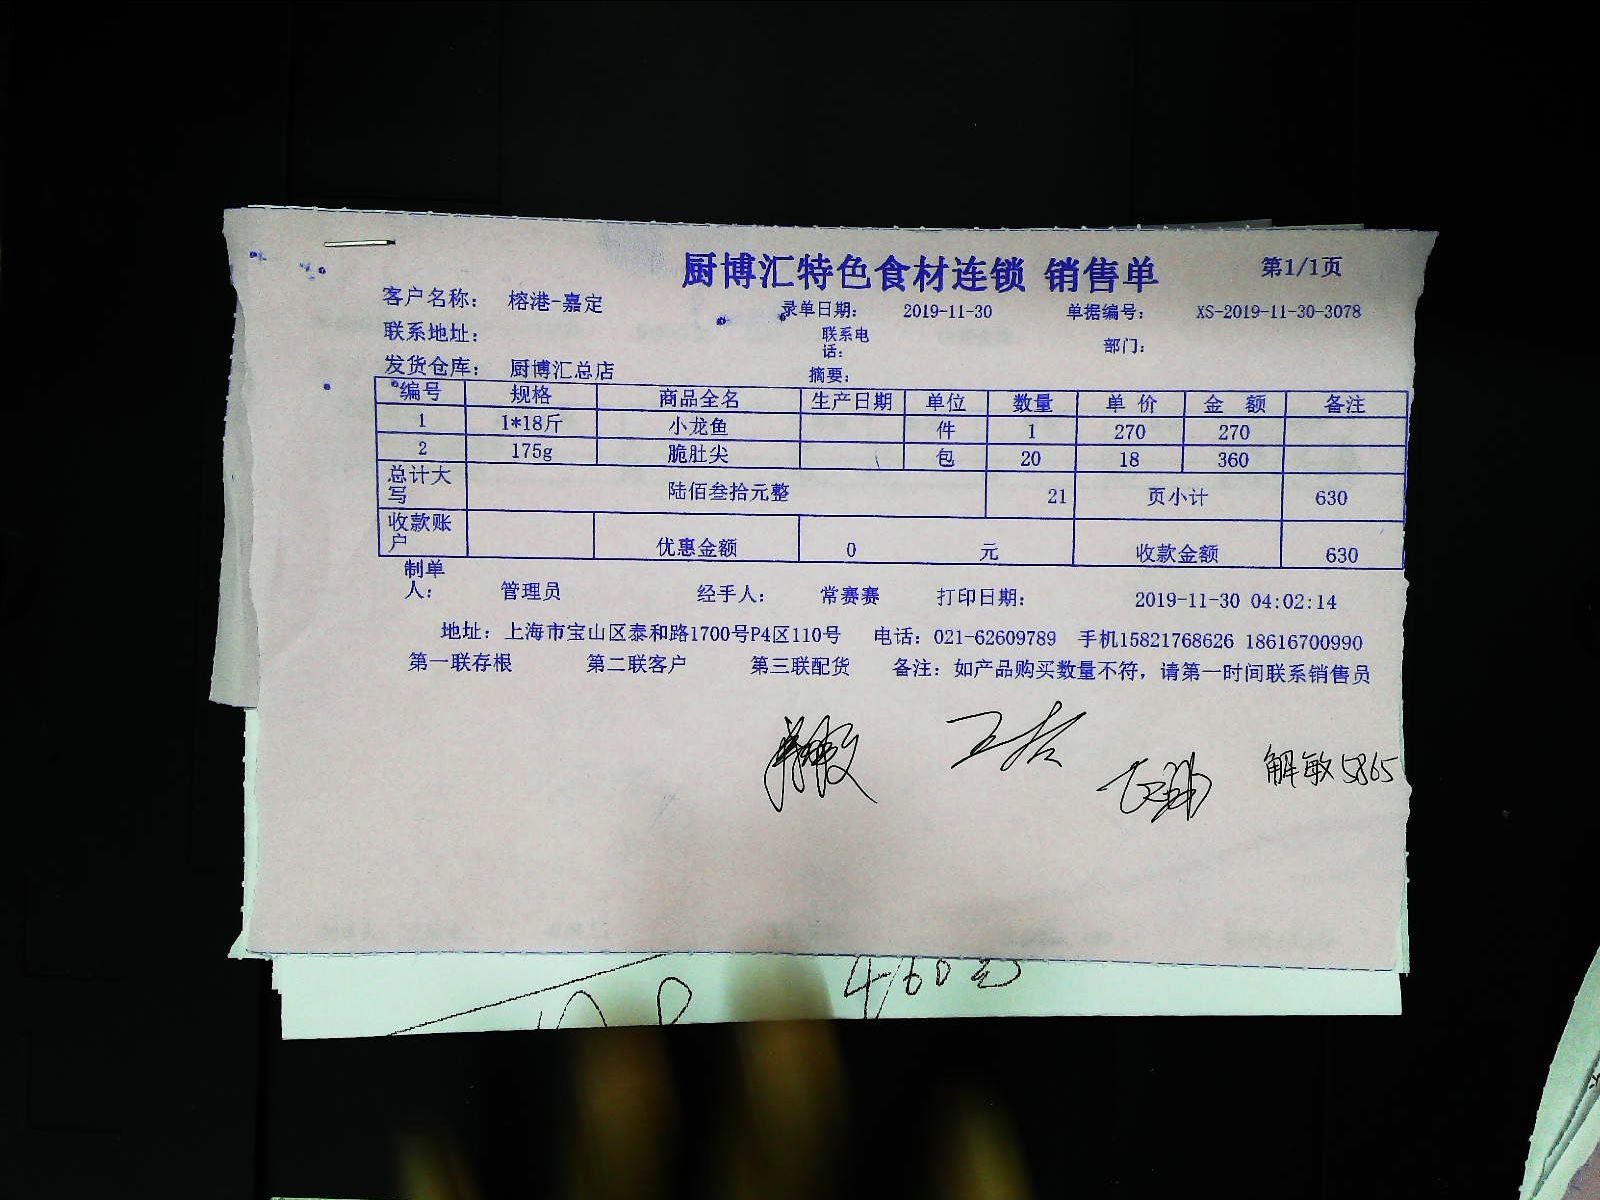 厨博汇特色食材连锁 销售单 第1/1页
客户名称： 榕港-嘉定 录单日期： 2019-11-30 单据编号： XS-2019-11-30-3078
联系地址： 联系电话： 部门：
发货仓库： 厨博汇总店 摘要：
编号 规格 商品全名 生产日期 单位 数量 单 价 金 额 备注
1 1*18斤 小龙鱼 件 1 270 270
2 175g 脆肚尖 包 20 18 360
总计大写 陆佰叁拾元整 21 页小计 630
收款账户 优惠金额 0 元 收款金额 630
制单人： 管理员 经手人： 常赛赛 打印日期： 2019-11-30 04:02:14
地址：上海市宝山区泰和路1700号P4区110号 电话：021-62609789 手机15821768626 18616700990
第一联存根 第二联客户 第三联配货 备注：如产品购买数量不符，请第一时间联系销售员
解敏5865